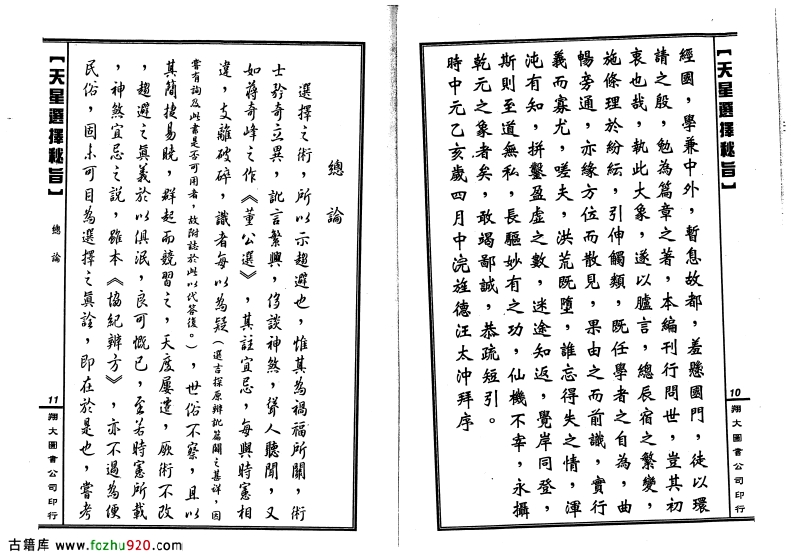 【天星選擇秘旨】
10
翔大圖書公司印行
經國，學兼中外，暫息故都，羞懸國門，徒以環
請之殷，勉為篇章之著，本編刊行問世，豈其初
衷也哉，執此大象，遂以臚言，總辰宿之繁變，
施條理於紛紜，引伸觸類，既任學者之自為，曲
暢旁通，亦緣方位而散見，果由之而前識，實行
義而寡尤，嗟夫，洪荒既墮，誰忘得失之情，渾
沌有知，拼鑿盈虛之數，迷途知返，覺岸同登，
斯則至道無私，長驅妙有之功，仙機不宰，永攝
乾元之象者矣，敢竭鄙誠，恭疏短引。
時中元乙亥歲四月中浣旌德汪太沖拜序
總論
選擇之術，所以示趨避也，惟其為禍福所關，術
士矜奇立異，訛言繁興，侈談神煞，聳人聽聞，又
如蔣奇峰之作《董公選》，其註宜忌，每與時憲相
違，支離破碎，識者每以為疑(選言探原辨訛篇闢之甚詳，因
嘗有詢及此書是否可用者，故附誌於此以代答復。)，世俗不察，且以
其簡捷易曉，群起而競習之，天度屢遷，厥術不改
，趨避之真義於以俱泯，良可慨已，至若時憲所載
，神煞宜忌之說，雖本《協紀辨方》，亦不過為便
民俗，固未可目為選擇之真詮，即在於是也，嘗考
【天星選擇秘旨】
總論
11
翔大圖書公司印行
古籍库 www.fozhu920.com